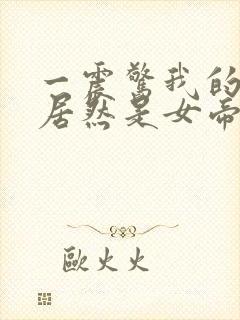 一震惊我的
居然是女帝
歐火火